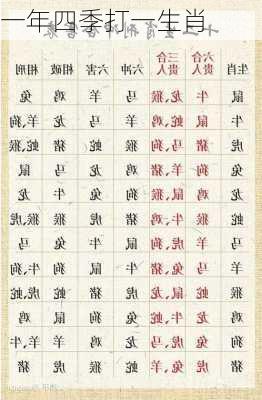 一年四季打一生肖
生肖 六合贵人 三合贵人 六冲 六害 相破 相刑
鼠 牛 龙、猴 马 羊 鸡 兔
牛 鼠 蛇、鸡 羊 马 龙 羊、狗
虎 猪 马、狗 猴 蛇 猪 猴、蛇
兔 狗 羊、猪 鸡 龙 马 鼠
龙 鸡 鼠、猴 狗 兔 牛 龙
蛇 猴 牛、鸡 猪 虎 猴 猴、虎
马 羊 虎、狗 鼠 牛 兔 马
羊 马 兔、猪 牛 鼠 狗 牛、狗
猴 蛇 鼠、龙 虎 猪 蛇 虎、蛇
鸡 龙 牛、蛇 兔 狗 鼠 鸡
狗 兔 虎、马 龙 鸡 羊 牛、羊
猪 虎 兔、羊 蛇 猴 虎 猪